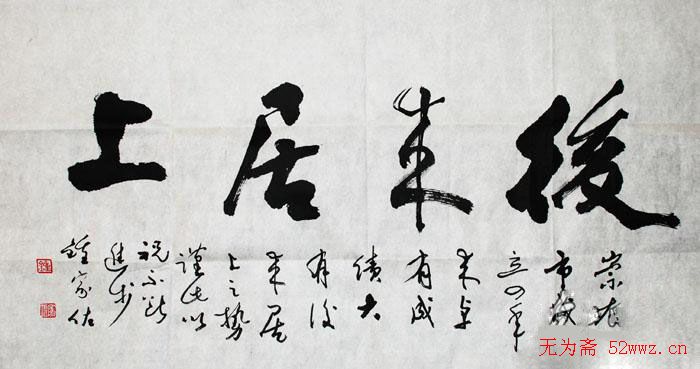 後来居上
崇左
市
立四年
来卓
有成
績大
有後
来居
上之勢
谨此以
祝不断
進步
鍾家佐
无为斋 52wwz.cn